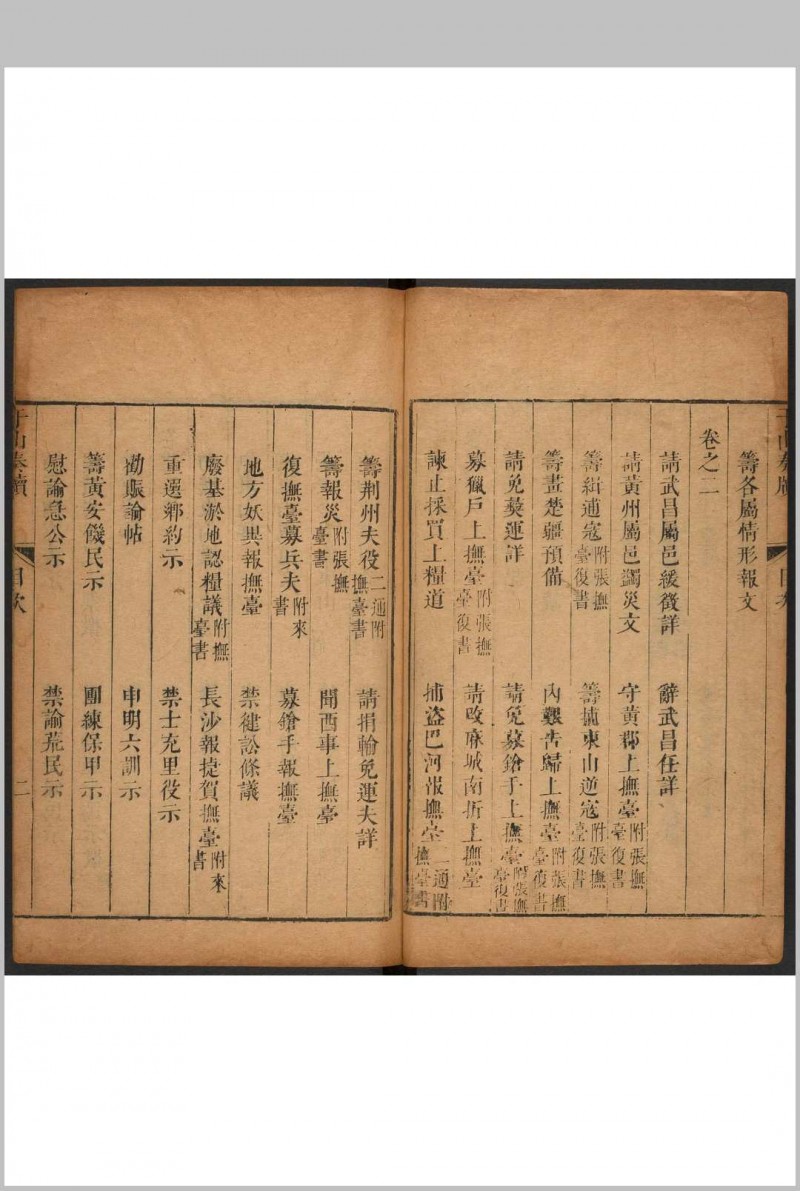 籌各屬情形報文
卷之二
請武昌屬邑緩徵詳　辭武昌任詳
請黃州屬邑蠲災文　守黃郡上撫臺附張撫臺復書
籌緝逋寇附張撫臺復書　籌撫東山逆寇附張撫臺復書
籌畫楚疆預備　內艱告歸上撫臺附張撫臺復書
請免葵運詳　請免募鎗手上撫臺附張撫臺復書
募獵戶上撫臺附張撫臺復書　請改麻城南折上撫臺
諫止採買上糧道　捕盜巴河報撫臺二通附撫臺書
籌荆州夫役二通附撫臺書　請捐輸免運夫詳
籌報災附張撫臺書　聞酉事上撫臺
復撫臺募兵夫附來書　募鎗手報撫臺
地方妖異報撫臺　禁健訟條議
廢基淤地認糧議附撫臺書　長沙報捷賀撫臺附來書
重選鄉約示　禁士充里役示
勸賑諭帖　申明六訓示
籌黃安饑民示　團練保甲示
慰諭急公示　禁諭荒民示
于山奏牘　目次　二